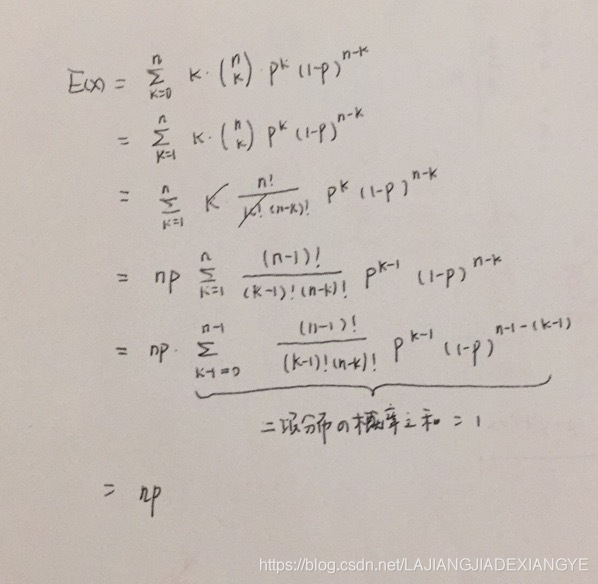 E(x) = Σ_{k=0}^{n} k · (n k) · p^k (1-p)^{n-k}
= Σ_{k=1}^{n} k · (n k) p^k (1-p)^{n-k}
= Σ_{k=1}^{n} k · n! / (k! (n-k)!) p^k (1-p)^{n-k}
= np Σ_{k=1}^{n} (n-1)! / ((k-1)! (n-k)!) p^{k-1} (1-p)^{n-k}
= np · Σ_{k-1=0}^{n-1} (n-1)! / ((k-1)! (n-k)!) p^{k-1} (1-p)^{n-1-(k-1)}
二项分布の概率之和 = 1
= np
https://blog.csdn.net/LAJIANGJIADEXIANGYE